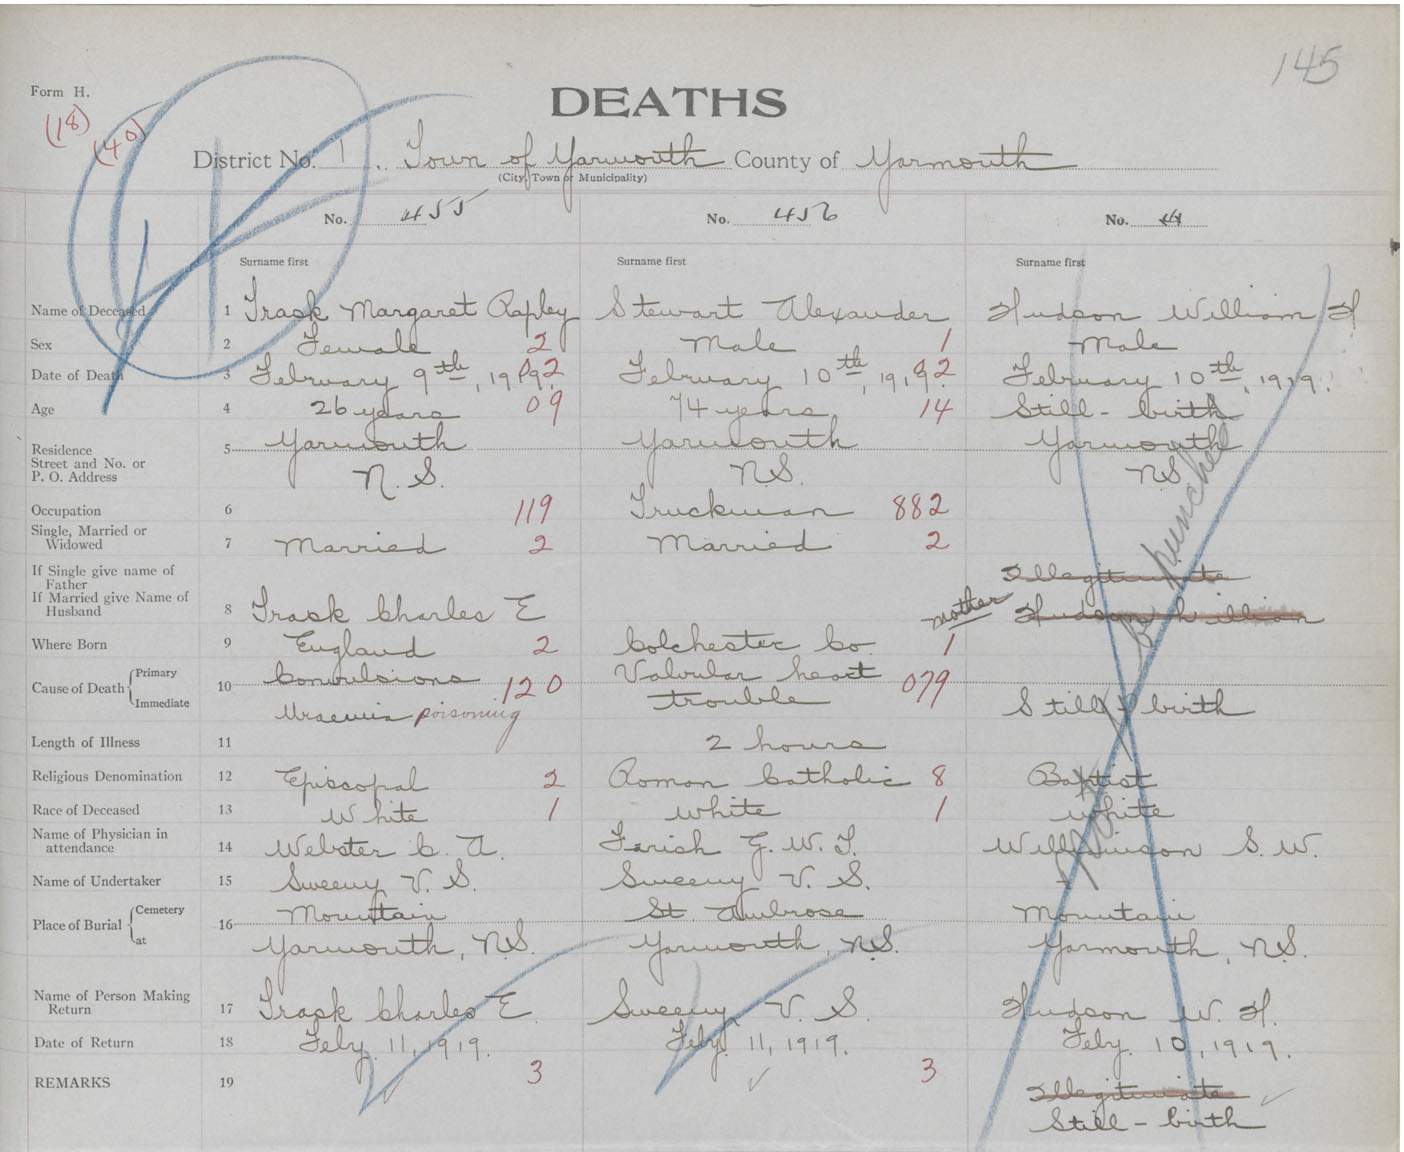 145
Form H.
DEATHS
(18)
(40)
District No. 1. Town of Yarmouth County of Yarmouth
(City, Town or Municipality)
No. 455 No. 456 No.
Surname first Surname first Surname first
Name of Deceased 1 Trask Margaret Rapley Stewart Alexander Hudson William H
Sex 2 Female 2 Male 1 Male
Date of Death 3 February 9th, 1919. 02 February 10th, 1919. 02 February 10th, 1919.
Age 4 26 years 09 74 years 14 Still-birth
Residence 5 Yarmouth Yarmouth Yarmouth
Street and No. or
P. O. Address N.S. N.S. N.S.
Occupation 6 119 Truckman 882
Single, Married or
Widowed 7 Married 2 Married 2
If Single give name of
Father Illegitimate
If Married give Name of
Husband 8 Trask Charles E mother Hudson Lillian
Where Born 9 England 2 Colchester Co. 1
Cause of Death Primary 10 Convulsions 120 Valvular heart 079
Immediate Uraemia poisoning trouble Still-birth
Length of Illness 11 2 hours
Religious Denomination 12 Episcopal 2 Roman Catholic 8 Baptist
Race of Deceased 13 White 1 White 1 White
Name of Physician in
attendance 14 Webster C. A. Farish G. W. T. Williamson S. W.
Name of Undertaker 15 Sweeny V. S. Sweeny V. S.
Place of Burial Cemetery 16 Mountain St Ambrose Mountain
at Yarmouth, N.S. Yarmouth, N.S. Yarmouth, N.S.
Name of Person Making
Return 17 Trask Charles E. Sweeny V. S. Hudson W. H.
Date of Return 18 Feby. 11, 1919. Feby. 11, 1919. Feby. 10, 1919.
REMARKS 19 3 3 Illegitimate
Still-birth
be punched